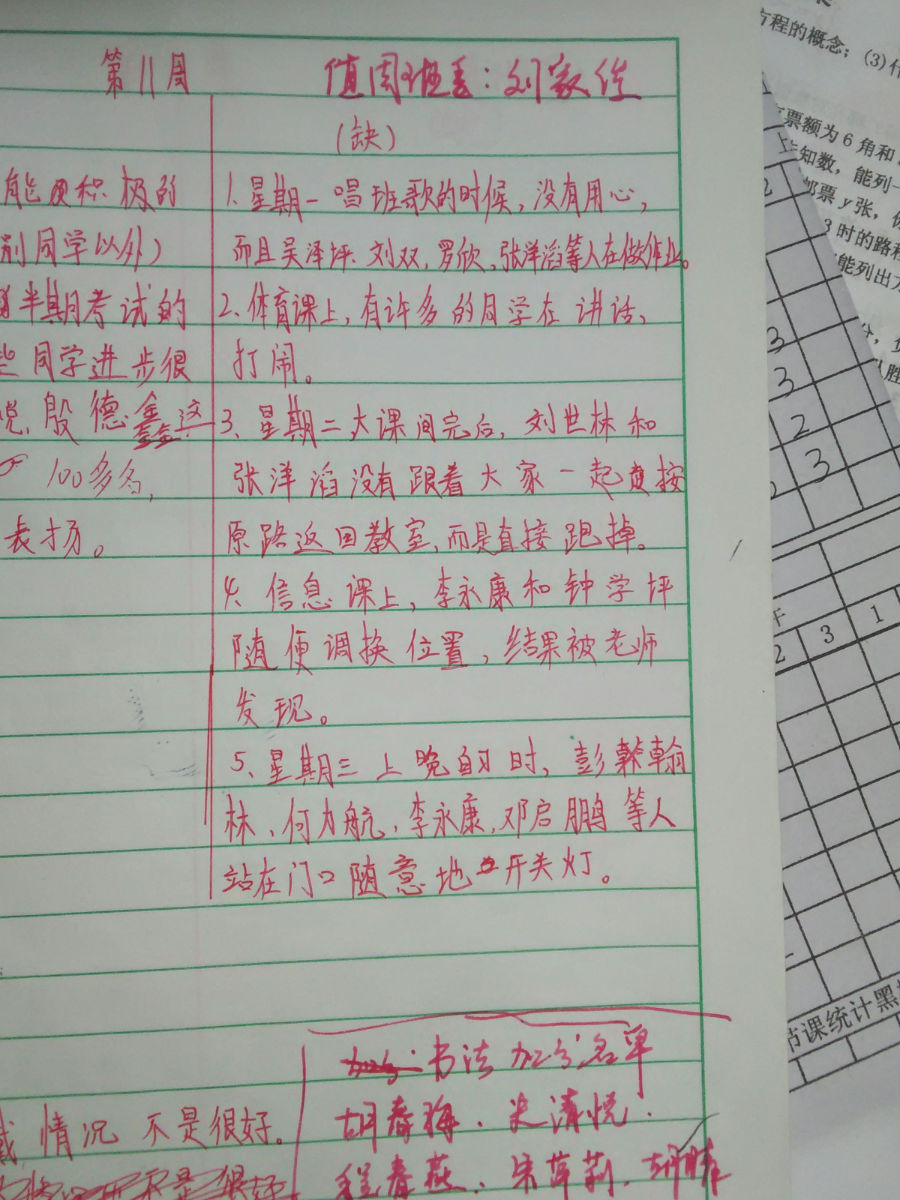 第11周
值周班长：刘家佳
（缺）
能积极的
别同学以外）
半期考试的
些同学进步很
悦、殷德鑫这
100多名，
表扬。
1、星期一唱班歌的时候，没有用心，
而且吴泽坪、刘双，罗欣、张洋滔等人在做作业。
2、体育课上，有许多的同学在讲话、
打闹。
3、星期二大课间完后，刘世林和
张洋滔没有跟着大家一起按
原路返回教室，而是直接跑掉。
4、信息课上，李永康和钟学坪
随便调换位置，结果被老师
发现。
5、星期三上晚自习时，彭翰
林、何力航，李永康，邓启鹏等人
站在门口随意地开关灯。
书法加分名单
胡春梅、朱清悦、
程春燕、宋萍莉、胡
情况不是很好。
方程的概念；(3)
票额为6角和
知数，能列一
邮票y张，
3时的路程
能列出方
3
3
2
3
2 3 1
节课统计黑